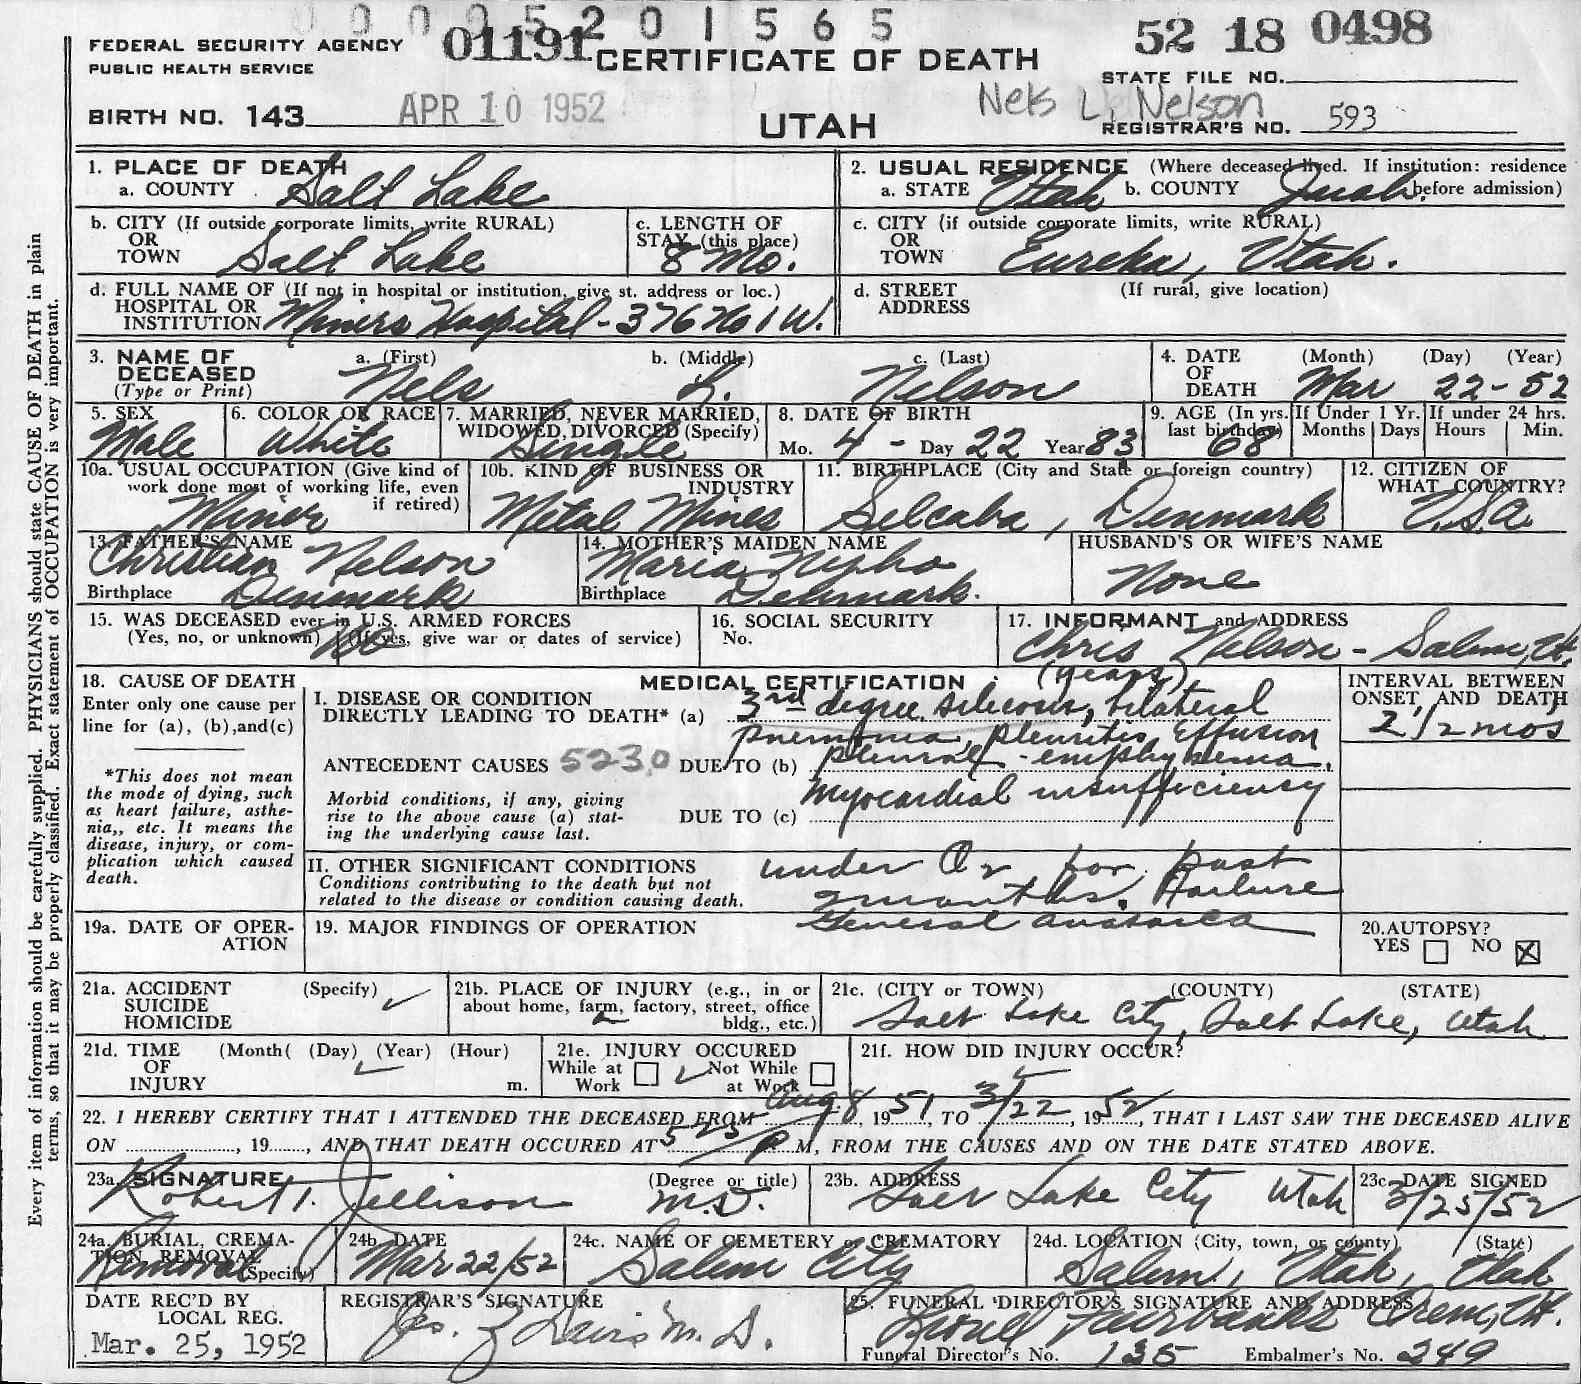 0 0 0 0 5 2 0 1 5 6 5
FEDERAL SECURITY AGENCY
PUBLIC HEALTH SERVICE
01191
CERTIFICATE OF DEATH
52 18 0498
STATE FILE NO.
BIRTH NO. 143
APR 10 1952
UTAH
Nels L. Nelson
REGISTRAR'S NO. 593
1. PLACE OF DEATH
a. COUNTY Salt Lake
2. USUAL RESIDENCE (Where deceased lived. If institution: residence before admission)
a. STATE Utah b. COUNTY Juab.
b. CITY (If outside corporate limits, write RURAL)
OR
TOWN Salt Lake
c. LENGTH OF
STAY (this place)
8 Mo.
c. CITY (if outside corporate limits, write RURAL)
OR
TOWN Eureka, Utah.
d. FULL NAME OF (If not in hospital or institution, give st. address or loc.)
HOSPITAL OR
INSTITUTION Miners Hospital - 376 No 1 W.
d. STREET (If rural, give location)
ADDRESS
3. NAME OF DECEASED
(Type or Print)
a. (First) Nels
b. (Middle) L.
c. (Last) Nelson
4. DATE OF DEATH
(Month) (Day) (Year)
Mar 22-52
5. SEX
Male
6. COLOR OR RACE
White
7. MARRIED, NEVER MARRIED,
WIDOWED, DIVORCED (Specify)
Single
8. DATE OF BIRTH
Mo. 4 - Day 22 Year 83
9. AGE (In yrs. last birthday)
68
If Under 1 Yr.
Months Days
If under 24 hrs.
Hours Min.
10a. USUAL OCCUPATION (Give kind of work done most of working life, even if retired)
Miner
10b. KIND OF BUSINESS OR INDUSTRY
Metal Mines
11. BIRTHPLACE (City and State or foreign country)
Selcaba, Denmark
12. CITIZEN OF WHAT COUNTRY?
U.S.A.
13. FATHER'S NAME
Christian Nelson
Birthplace Denmark
14. MOTHER'S MAIDEN NAME
Maria
Birthplace Denmark.
HUSBAND'S OR WIFE'S NAME
None
15. WAS DECEASED ever in U.S. ARMED FORCES
(Yes, no, or unknown) (If yes, give war or dates of service)
No
16. SOCIAL SECURITY
No.
17. INFORMANT and ADDRESS
Chris Nelson - Salem, Ut.
18. CAUSE OF DEATH
Enter only one cause per line for (a), (b), and (c)
*This does not mean the mode of dying, such as heart failure, asthenia,, etc. It means the disease, injury, or complication which caused death.
MEDICAL CERTIFICATION
(years)
I. DISEASE OR CONDITION
DIRECTLY LEADING TO DEATH* (a) 3rd degree silicosis, bilateral
pnemonia, pleuritis, Effusion
ANTECEDENT CAUSES 5230 DUE TO (b) pleural - emphysema.
Morbid conditions, if any, giving rise to the above cause (a) stating the underlying cause last.
myocardial insufficiency
DUE TO (c)
INTERVAL BETWEEN ONSET, AND DEATH
2 1/2 mos
II. OTHER SIGNIFICANT CONDITIONS
Conditions contributing to the death but not related to the disease or condition causing death.
under O2 for past
2 months. Failure
General anasarca
19a. DATE OF OPERATION
19. MAJOR FINDINGS OF OPERATION
20. AUTOPSY?
YES NO X
21a. ACCIDENT (Specify)
SUICIDE
HOMICIDE
21b. PLACE OF INJURY (e.g., in or about home, farm, factory, street, office bldg., etc.)
21c. (CITY or TOWN) (COUNTY) (STATE)
Salt Lake City, Salt Lake, Utah
21d. TIME (Month( (Day) (Year) (Hour)
OF
INJURY m.
21e. INJURY OCCURED
While at Work Not While at Work
21f. HOW DID INJURY OCCUR?
22. I HEREBY CERTIFY THAT I ATTENDED THE DECEASED FROM Aug 8, 1951, TO 3/22, 1952, THAT I LAST SAW THE DECEASED ALIVE
ON , 19 , AND THAT DEATH OCCURED AT 525 P M, FROM THE CAUSES AND ON THE DATE STATED ABOVE.
23a. SIGNATURE (Degree or title)
Robert T. Jellison M.D.
23b. ADDRESS
Salt Lake City Utah
23c. DATE SIGNED
3/25/52
24a. BURIAL, CREMATION, REMOVAL (Specify)
Removal
24b. DATE
Mar 22/52
24c. NAME OF CEMETERY or CREMATORY
Salem City
24d. LOCATION (City, town, or county) (State)
Salem, Utah, Utah
DATE REC'D BY LOCAL REG.
Mar. 25, 1952
REGISTRAR'S SIGNATURE
Davis M.D.
25. FUNERAL DIRECTOR'S SIGNATURE AND ADDRESS
Lionel Fairbanks Orem, Ut.
Funeral Director's No. 135 Embalmer's No. 249
Every item of information should be carefully supplied. PHYSICIANS should state CAUSE OF DEATH in plain
terms, so that it may be properly classified. Exact statement of OCCUPATION is very important.